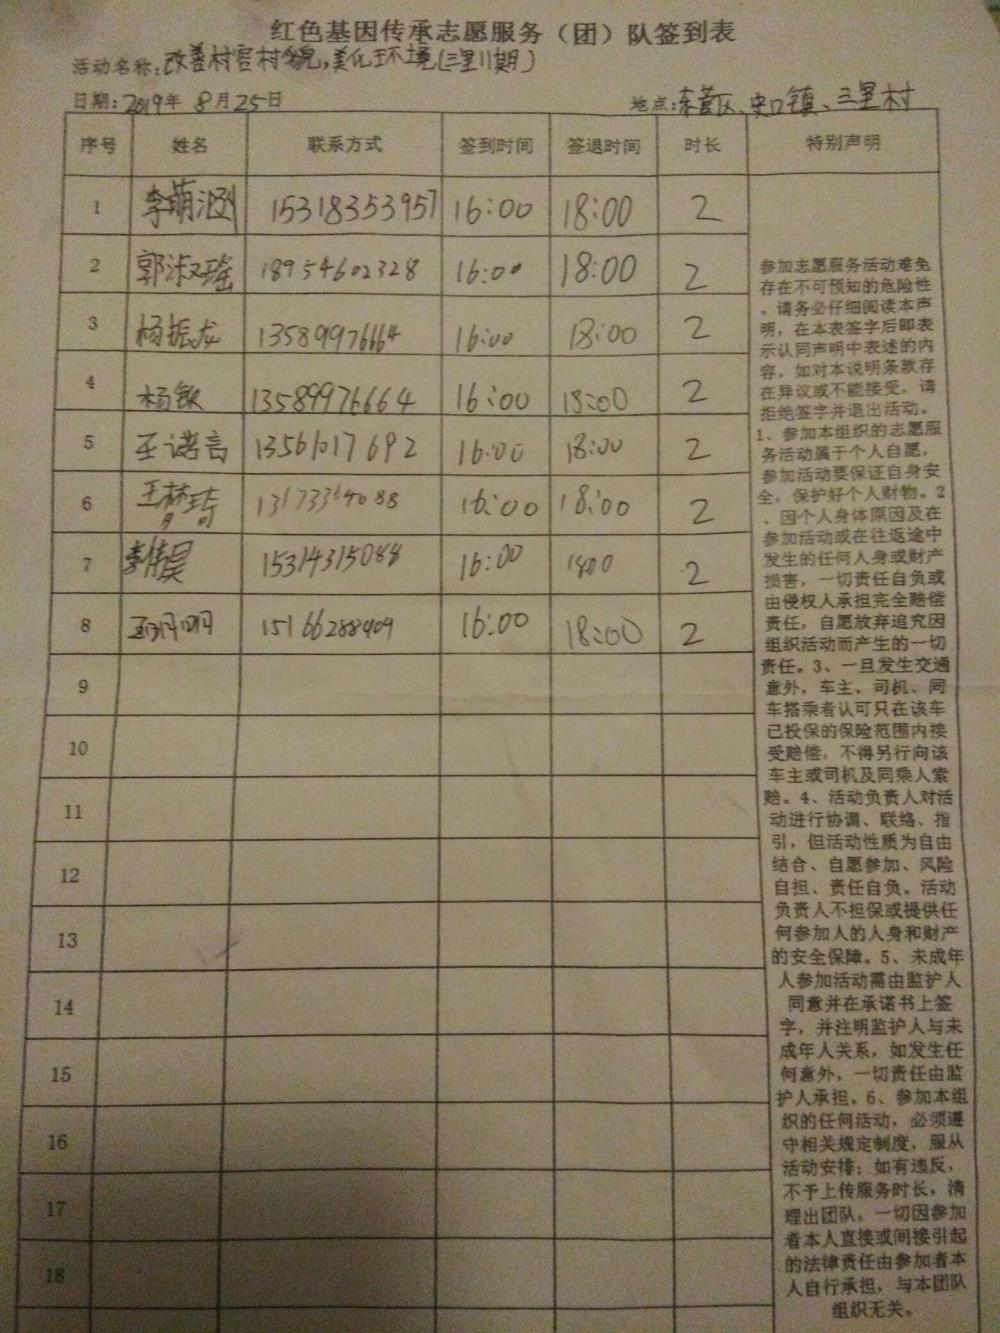 红色基因传承志愿服务（团）队签到表
活动名称:改善村容村貌,美化环境(三里11期)
日期:2019年 8月25日 地点:东营区、史口镇、三里村
序号 姓名 联系方式 签到时间 签退时间 时长 特别声明
1 15318353957 16:00 18:00 2
2 郭淑瑶 18954602328 16:00 18:00 2
3 杨振龙 13589976664 16:00 18:00 2
4 杨钦 13589976664 16:00 18:00 2
5 王诺言 13561017692 16:00 18:00 2
6 16:00 18:00 2
7 16:00 1800 2
8 16:00 18:00 2
9
10
11
12
13
14
15
16
17
18
参加志愿服务活动难免
存在不可预知的危险性
。请务必仔细阅读本声
明，在本表签字后即表
示认同声明中表述的内
容。如对本说明条款存
在异议或不能接受，请
拒绝签字并退出活动。
1、参加本组织的志愿服
务活动属于个人自愿，
参加活动要保证自身安
全，保护好个人财物。2
、因个人身体原因及在
参加活动或在往返途中
发生的任何人身或财产
损害，一切责任自负或
由侵权人承担完全赔偿
责任，自愿放弃追究因
组织活动而产生的一切
责任。3、一旦发生交通
意外，车主、司机、同
车搭乘者认可只在该车
已投保的保险范围内接
受赔偿，不得另行向该
车主或司机及同乘人索
赔。4、活动负责人对活
动进行协调、联络、指
引，但活动性质为自由
结合、自愿参加、风险
自担、责任自负。活动
负责人不担保或提供任
何参加人的人身和财产
的安全保障。5、未成年
人参加活动需由监护人
同意并在承诺书上签
字，并注明监护人与未
成年人关系，如发生任
何意外，一切责任由监
护人承担。6、参加本组
织的任何活动，必须遵
守相关规定制度，服从
活动安排；如有违反，
不予上传服务时长，清
理出团队，一切因参加
者本人直接或间接引起
的法律责任由参加者本
人自行承担，与本团队
组织无关。